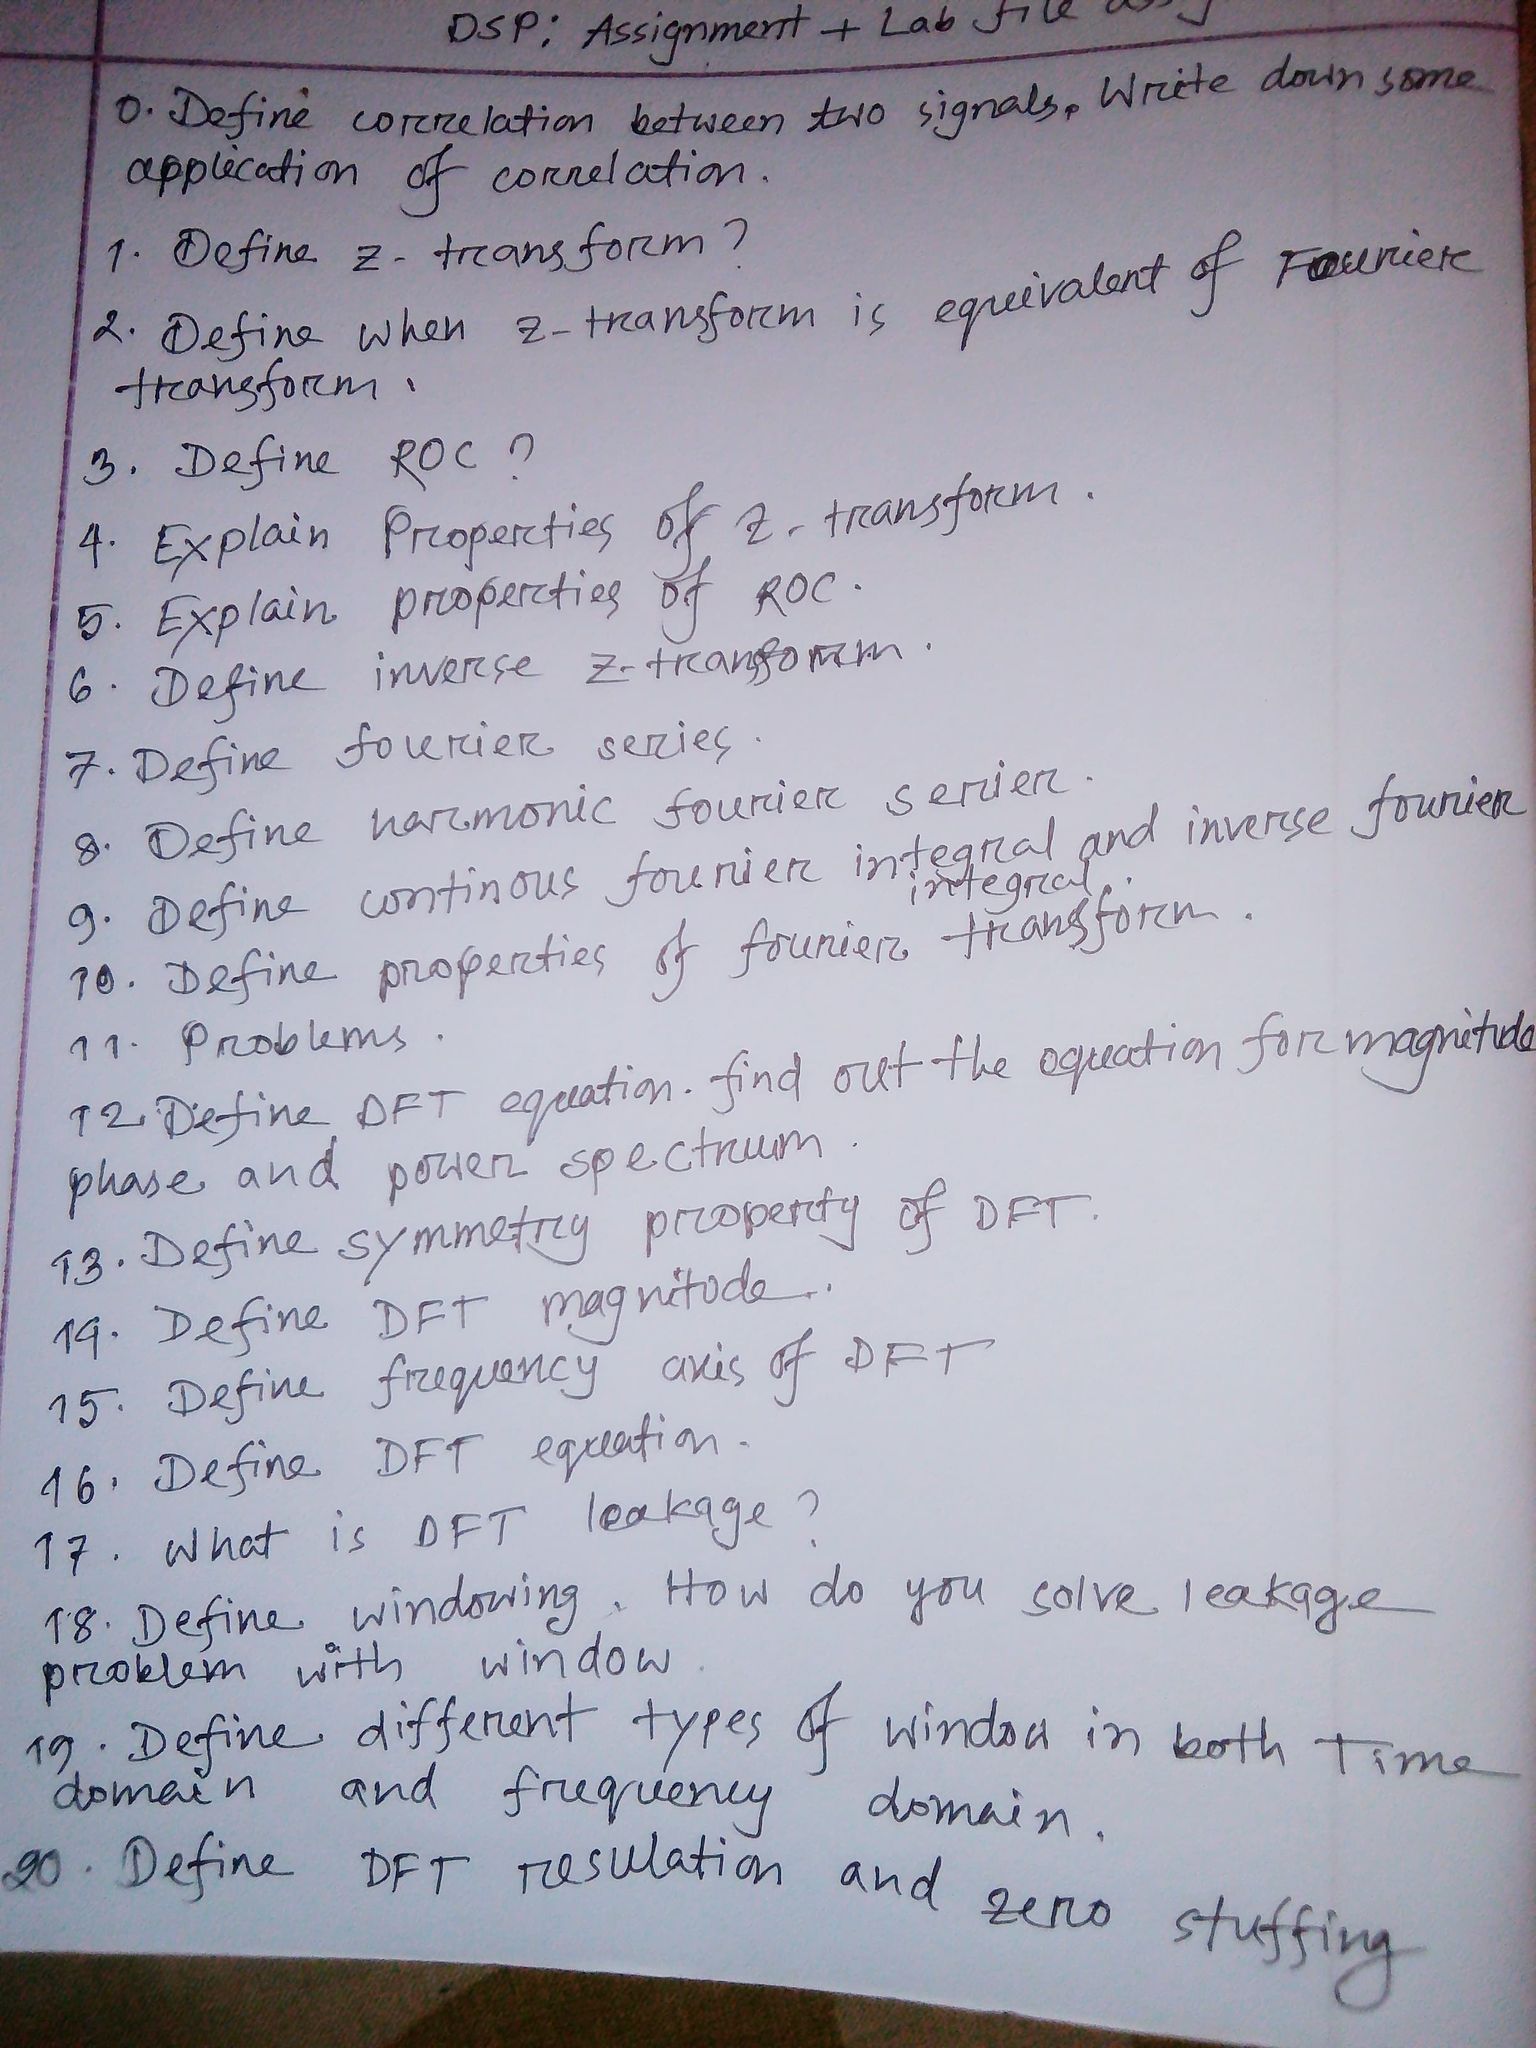 DSP: Assignment + Lab file
0. Define correlation between two signals. Write down some
application of correlation.
1. Define z- transform?
2. Define when z-transform is equivalent of Fourier
transform.
3. Define ROC?
4. Explain Properties of z- transform.
5. Explain properties of ROC.
6. Define inverse z-transform.
7. Define fourier series.
8. Define harmonic fourier serier.
9. Define continous fourier integral and inverse fourier
integral.
10. Define properties of fourier transform.
11. Problems.
12. Define DFT equation. find out the equation for magnitude
phase and power spectrum.
13. Define symmetry property of DFT.
14. Define DFT magnitude.
15. Define frequency axis of DFT
16. Define DFT equation.
17. What is DFT leakage?
18. Define windowing. How do you solve leakage
problem with window.
19. Define different types of window in both Time
domain and frequency domain.
20. Define DFT resulation and zero stuffing